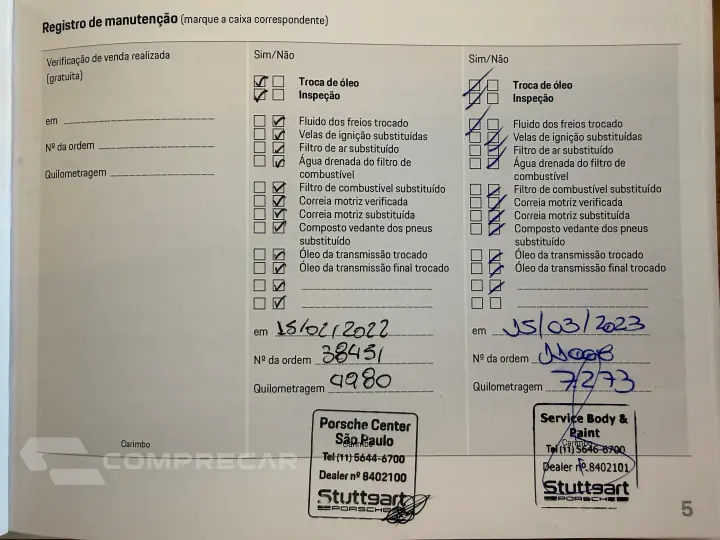 Registro de manutenção (marque a caixa correspondente)
Verificação de venda realizada
(gratuita)
em
Nº da ordem
Quilometragem
Carimbo
Sim/Não
Troca de óleo
Inspeção
Fluido dos freios trocado
Velas de ignição substituídas
Filtro de ar substituído
Água drenada do filtro de
combustível
Filtro de combustível substituído
Correia motriz verificada
Correia motriz substituída
Composto vedante dos pneus
substituído
Óleo da transmissão trocado
Óleo da transmissão final trocado
em 15/02/2022
Nº da ordem 38451
Quilometragem 4980
Porsche Center
São Paulo
Carimbo
Tel (11) 5644-6700
Dealer nº 8402100
Stuttgart
PORSCHE
Sim/Não
Troca de óleo
Inspeção
Fluido dos freios trocado
Velas de ignição substituídas
Filtro de ar substituído
Água drenada do filtro de
combustível
Filtro de combustível substituído
Correia motriz verificada
Correia motriz substituída
Composto vedante dos pneus
substituído
Óleo da transmissão trocado
Óleo da transmissão final trocado
em 15/03/2023
Nº da ordem
Quilometragem 7273
Service Body &
Paint
Carimbo
Tel (11) 5646-6700
Dealer nº 8402101
Stuttgart
PORSCHE
COMPRECAR
5